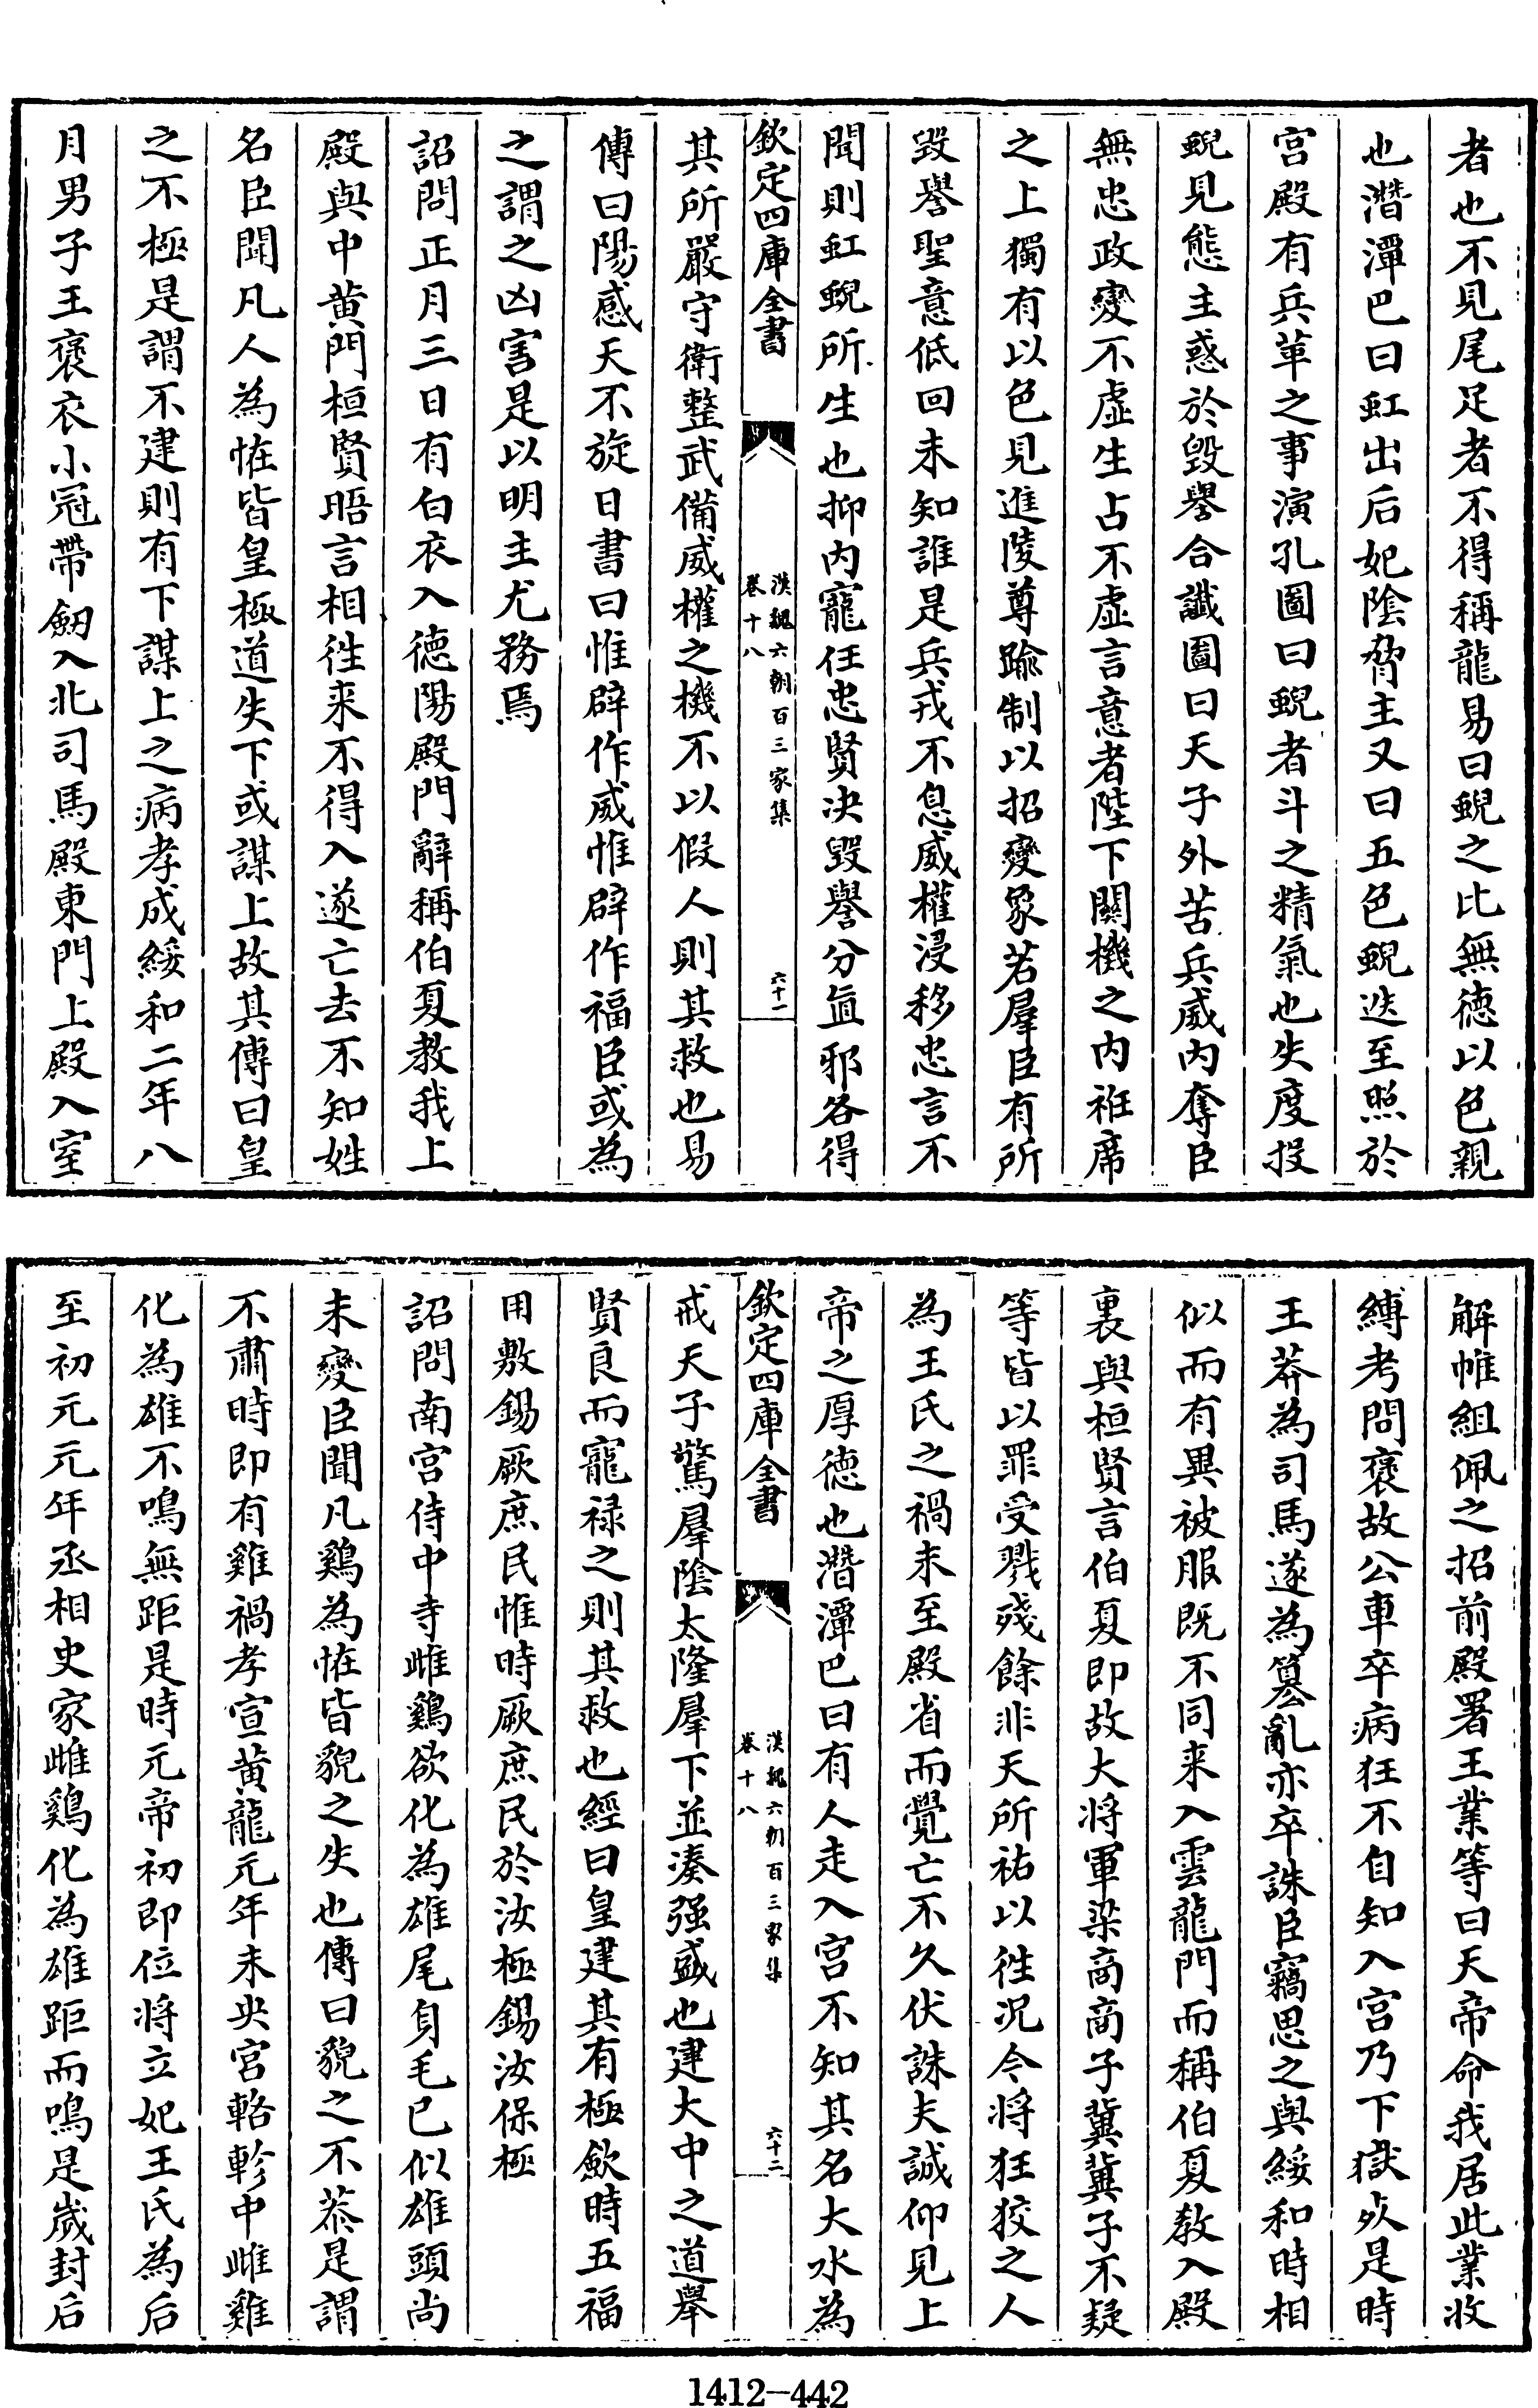 者也不見尾足者不得稱龍易曰蜺之比無徳以色親
也潛潭巴曰虹出后妃隂脅主又曰五色蜺迭至照於
宫殿有兵革之事演孔圖曰蜺者斗之精氣也失度投
蜺見態主惑於毁譽合讖圖曰天子外苦兵威内奪臣
無忠政變不虚生占不虚言意者陛下關機之内袵席
之上獨有以色見進陵尊踰制以招變象若羣臣有所
毁譽聖意低回未知誰是兵戎不息威權浸移忠言不
聞則虹蜺所生也抑内寵任忠賢决毁譽分直邪各得
欽定四庫全書
漢魏六朝百三家集
卷十八
六十一
其所嚴守衛整武備威權之機不以假人則其救也易
傳曰陽感天不旋日書曰惟辟作威惟辟作福臣或為
之謂之凶害是以明主尤務焉
詔問正月三日有白衣入徳陽殿門辭稱伯夏教我上
殿與中黄門桓賢晤言相徃来不得入遂亡去不知姓
名臣聞凡人為恠皆皇極道失下或謀上故其傳曰皇
之不極是謂不建則有下謀上之病孝成綏和二年八
月男子王褒衣小冠帶劒入北司馬殿東門上殿入室
解帷組佩之招前殿署王業等曰天帝命我居此業收
縛考問褒故公車卒病狂不自知入宫乃下獄死是時
王莽為司馬遂為簒亂亦卒誅臣竊思之與綏和時相
似而有異被服既不同来入雲龍門而稱伯夏教入殿
裏與桓賢言伯夏即故大将軍梁商商子冀冀子不疑
等皆以罪受戮殘餘非天所祐以徃况今将狂狡之人
為王氏之禍未至殿省而覺亡不久伏誅夫誠仰見上
帝之厚徳也潛潭巴曰有人走入宫不知其名大水為
欽定四庫全書
漢魏六朝百三家集
卷十八
六十二
戒天子驚羣隂太隆羣下並凑强盛也建大中之道舉
賢良而寵禄之則其救也經曰皇建其有極歛時五福
用敷錫厥庶民惟時厥庶民於汝極錫汝保極
詔問南宫侍中寺雌鷄欲化為雄尾身毛已似雄頭尚
未變臣聞凡鷄為恠皆貌之失也傳曰貌之不恭是謂
不肅時即有雞禍孝宣黄龍元年未央宫輅軫中雌雞
化為雄不鳴無距是時元帝初即位将立妃王氏為后
至初元元年丞相史家雌鷄化為雄距而鳴是嵗封后
1412—442